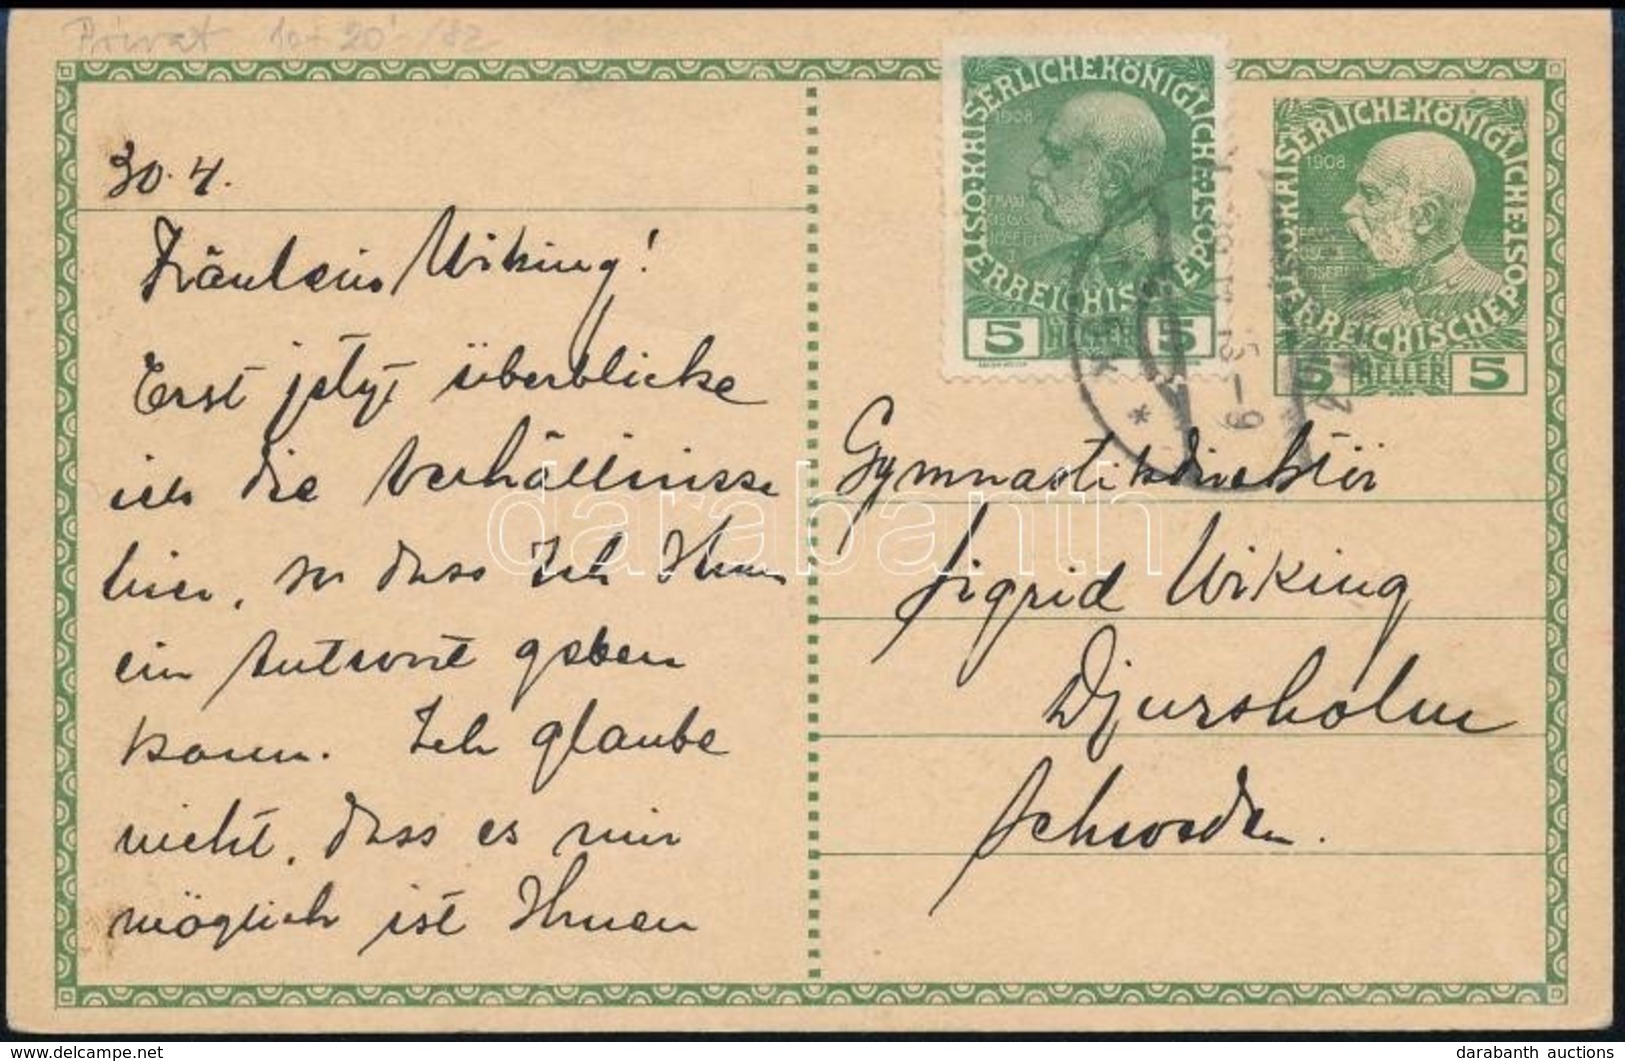 Privat 10 - 20 /82
30.4.
Fräulein Wiking!
Erst jetzt überblicke
ich die Verhältnisse
hier, so dass Ich Ihnen
ein Antwort geben
kann. Ich glaube
nicht, dass es mir
möglich ist Ihnen
ÖSTERREICHISCHE POST KAISERLICHE KÖNIGLICHE
1908
FRANZ
JOSEPH
5 HELLER 5
KAISERLICHE KÖNIGLICHE ÖSTERREICHISCHE POST
1908
5 HELLER 5
Gymnastikdirektör
Sigrid Wiking
Djursholm
Schweden.
darabanth
delcampe.net
darabanth auctions